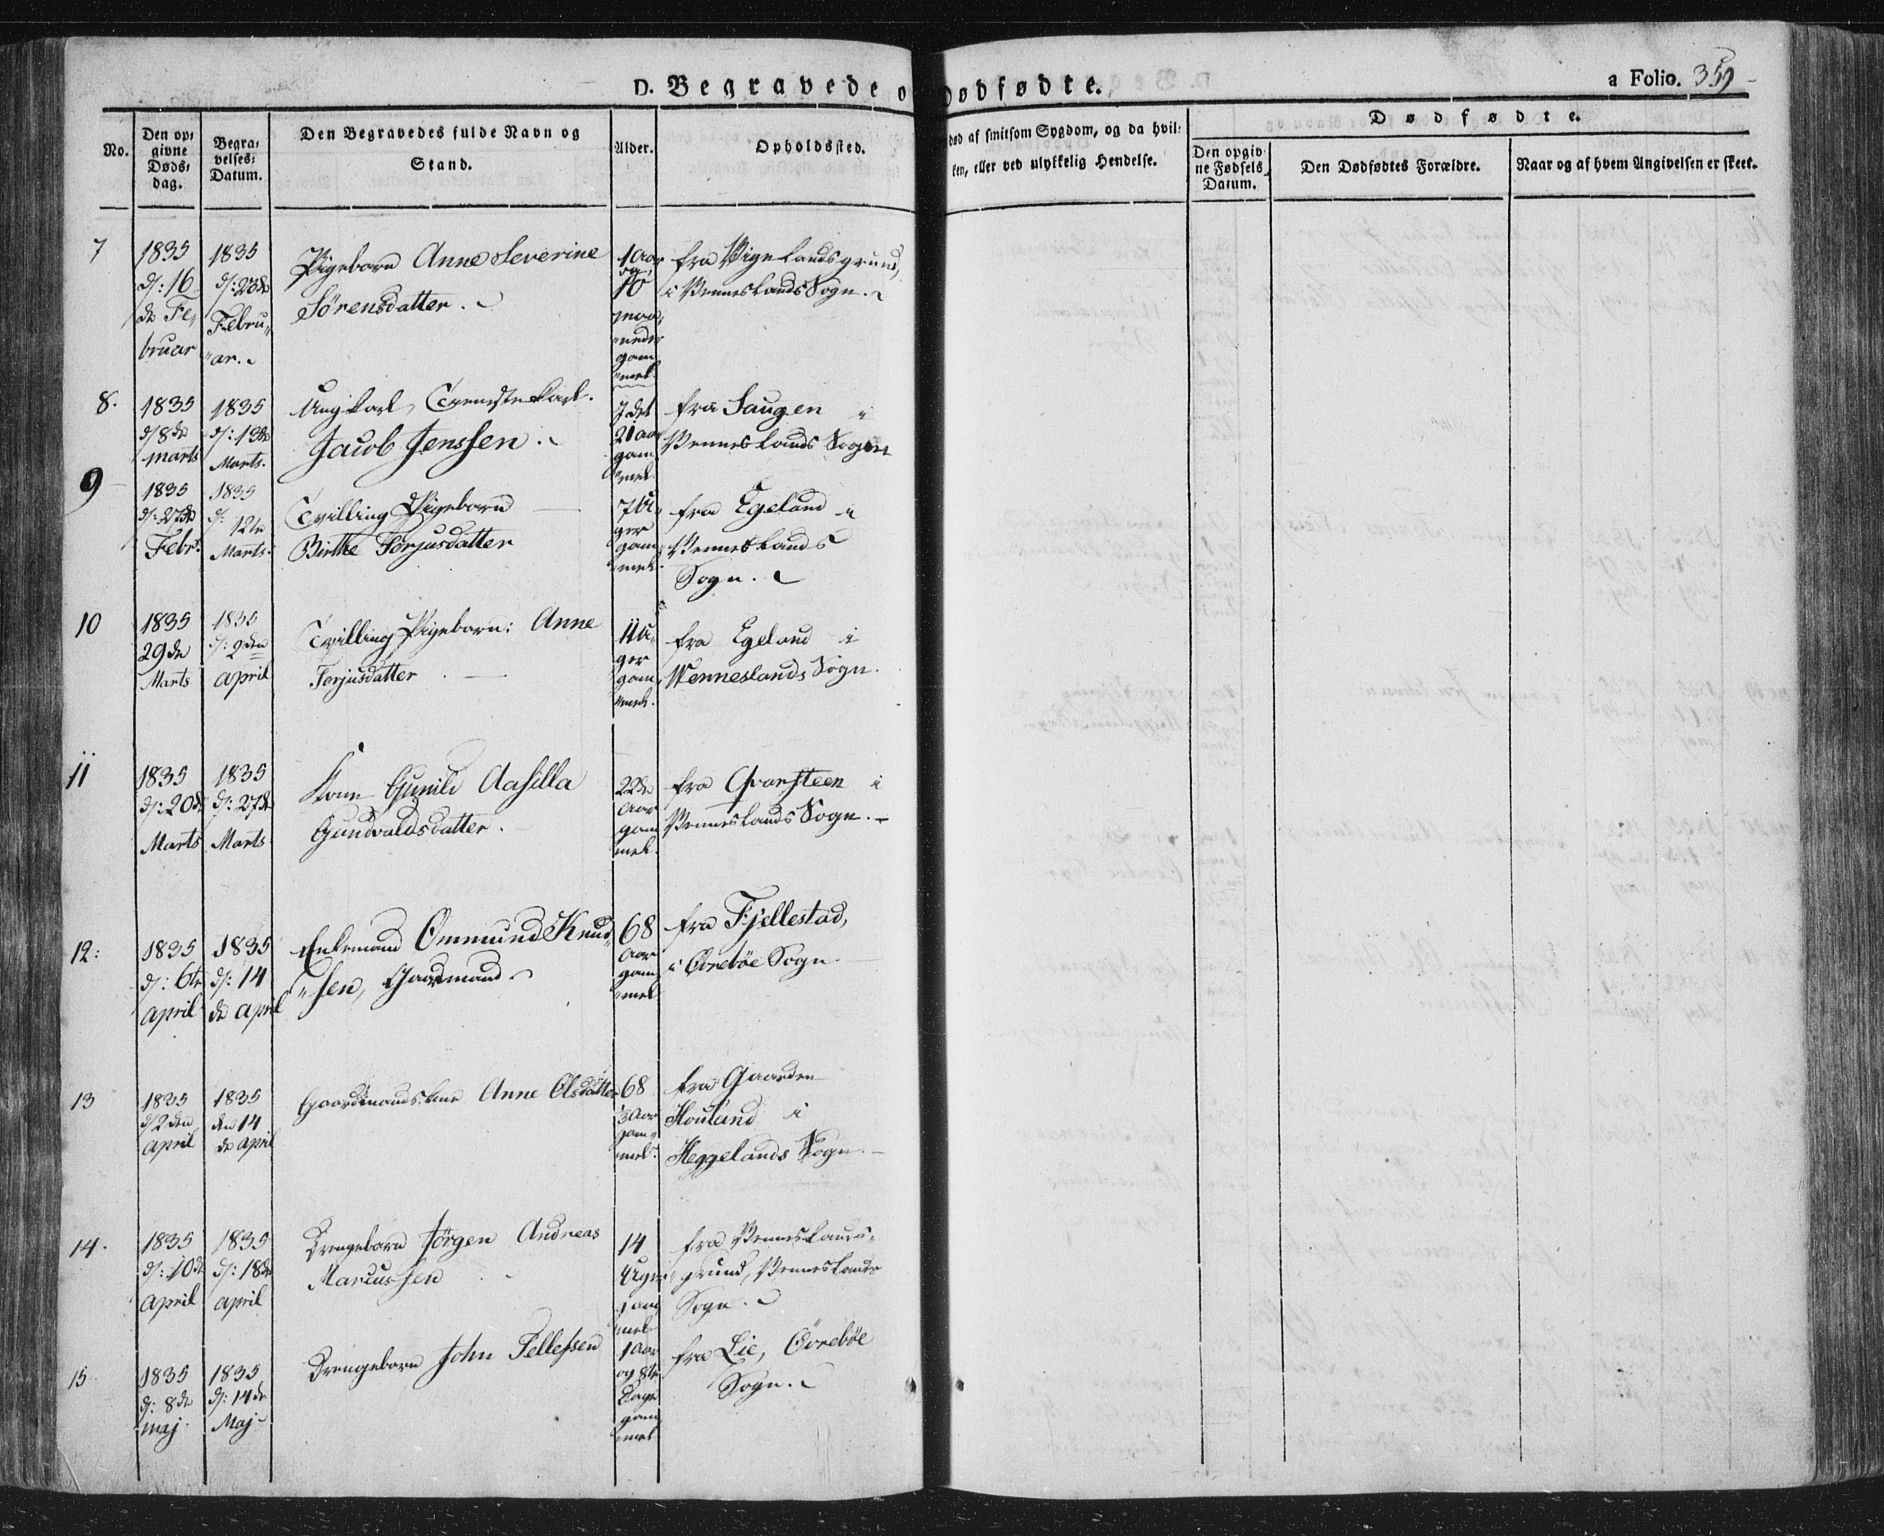 D. Begravede o
Dødfødte.
a Folio. 359
No.
Den op-
givne
Døds-
dag.
Begra-
velses-
Datum.
Den Begravedes fulde Navn og
Stand.
Alder.
Opholdssted.
død af smitsom Sygdom, og da hvil-
ken, eller ved ulykkelig Hendelse.
Dødfødte.
Den opgiv-
ne Fødsels
Datum.
Den Dødfødtes Forældre.
Naar og af hvem Angivelsen er skeet.
7
1835
d: 16
de Fe-
bruar
1835
d: 23de
Febru-
ar.
Pigebarn Anne Severine
Sörensdatter.
1 Aar
og
10
maa-
neder
gam
mel
fra Vigelandsgrund,
i Venneslands Sogn.
8.
1835
d 8de
marts
1835
d: 13de
Marts.
Ungkarl, Tjenestekarl.
Jacob Jenssen.
i det
21 aar
gam
mel
fra Saugen i
Venneslands Sogn
9
1835
d: 27de
Febr.
1835
d: 12te
Marts.
Tvilling Pigebarn
Birthe Terjusdatter
7 U-
ger
gam
mel.
fra Egeland i
Venneslands
Sogn.
10
1835
29de
Marts
1835
d: 2den
April
Tvilling Pigebarn: Anne
Terjusdatter
11 U-
ger
gam
mel.
fra Egeland i
Venneslands Sogn.
11
1835
d: 20de
Marts
1835
d: 27de
Marts.
Kone Gunild Aasilla
Gundvaldsdatter.
22de
Aar
gam
mel.
fra Qvarsteen i
Venneslands Sogn.
12:
1835
d: 6te
April
1835
d: 14
de April
Enkemand Ommund Knud-
sen, Gaardmand.
68
Aar
gam
mel
fra Fjellestad,
i Øvrebøe Sogn.
13
1835
d 2den
April
1835
den 14
de April
Gaardmands kone Anne Olsdatter
68
Aar
gam-
mel.
fra Gaarden
Houland i
Heggelands Sogn.
14.
1835
d: 10de
April
1835
d: 18de
April
Drengebarn Jörgen Andreas
Marcussen
14
Uger
gam
mel
fra Venneslands-
grund, Venneslands
Sogn.
15
1835
d: 8de
maj.
1835
d: 14de
Maj.
Drengebarn John Tellefsen
1 Aar
og 8te
Dage
gam
mel
fra Lie, Øvrebøe
Sogn.